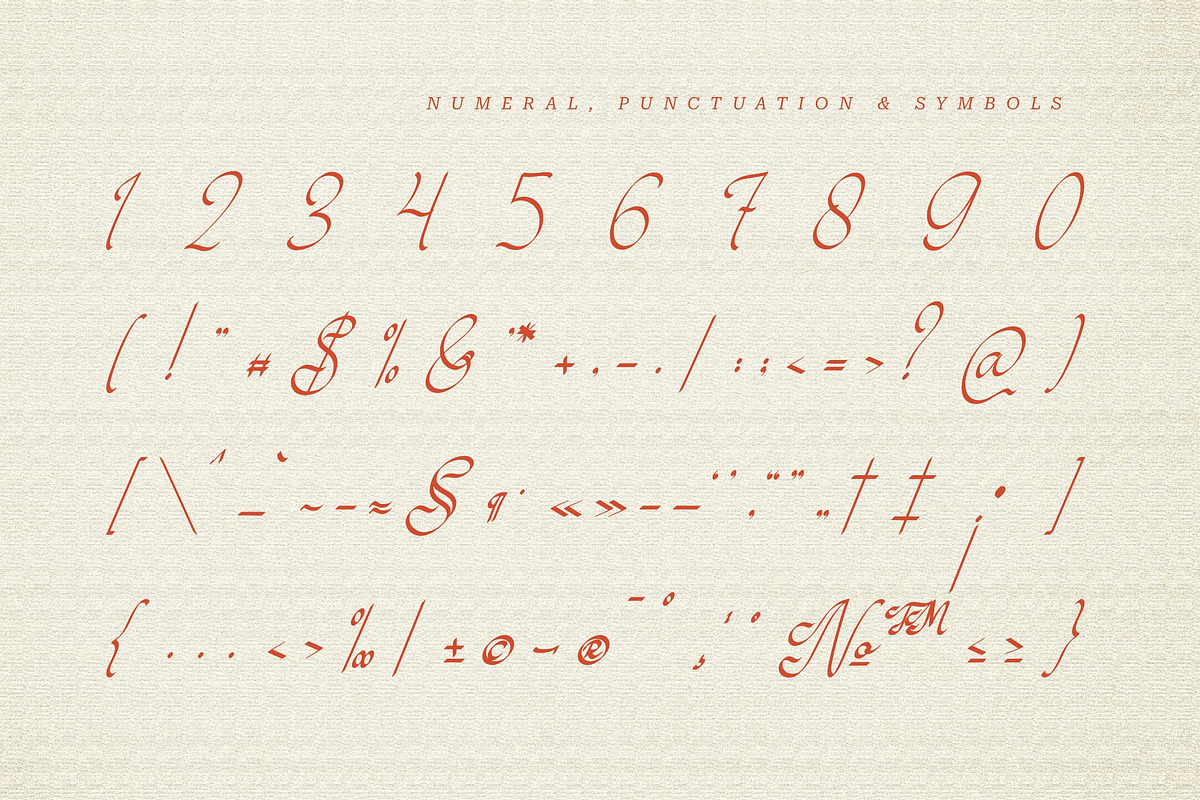 NUMERAL, PUNCTUATION & SYMBOLS
1 2 3 4 5 6 7 8 9 0
( ! " # $ % & ' * + , - . / : ; < = > ? @ )
[ \ ^ _ ` ~ – ≈ § ¶ · « » – — ‘ ’ ‚ “ ” „ † ‡ ¡ • ]
{ . . . ‹ › ‰ | ± © ¬ ® ¯ ° ¸ ' ˚ № ™ ≤ ≥ }